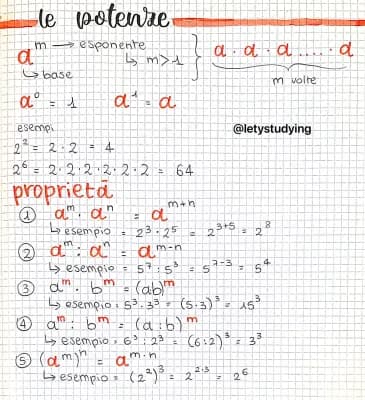 le potenze
aᵐ → esponente
↳ m>1
↳ base
a · a · a ..... · a
m volte
a⁰ = 1 a¹ = a
esempi
@letystudying
2² = 2 · 2 = 4
2⁶ = 2 · 2 · 2 · 2 · 2 · 2 = 64
proprietà
① aᵐ · aⁿ = aᵐ⁺ⁿ
↳ esempio = 2³ · 2⁵ = 2³⁺⁵ = 2⁸
② aᵐ : aⁿ = aᵐ⁻ⁿ
↳ esempio = 5⁷ : 5³ = 5⁷⁻³ = 5⁴
③ aᵐ · bᵐ = (ab)ᵐ
↳ esempio = 5³ · 3³ = (5·3)³ = 15³
④ aᵐ : bᵐ = (a : b)ᵐ
↳ esempio = 6³ : 2³ = (6:2)³ = 3³
⑤ (aᵐ)ⁿ = aᵐ·ⁿ
↳ esempio = (2²)³ = 2²·³ = 2⁶